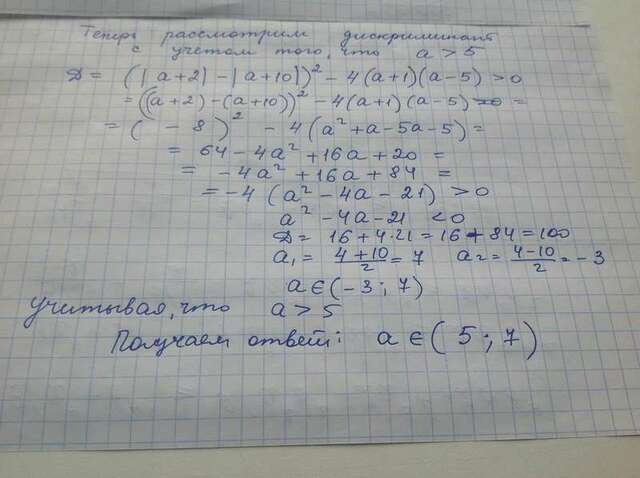 Теперь рассмотрим дискриминант
с учетом того, что a > 5
D = (|a+2| - |a+10|)² - 4(a+1)(a-5) > 0
= ((a+2) - (a+10))² - 4(a+1)(a-5) =
= ( - 8 )² - 4(a² + a - 5a - 5) =
= 64 - 4a² + 16a + 20 =
= - 4a² + 16a + 84 =
= - 4 (a² - 4a - 21) > 0
a² - 4a - 21 < 0
D = 16 + 4·21 = 16 + 84 = 100
a₁ = (4+10)/2 = 7 a₂ = (4-10)/2 = - 3
a ∈ (- 3 ; 7)
Учитывая, что a > 5
Получаем ответ: a ∈ ( 5 ; 7 )